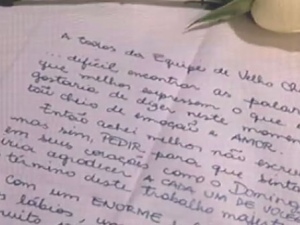 A todos da Equipe de Velho Ch
... difícil encontrar as palav
que melhor expressem o que
gostaria de dizer neste momen
tão cheio de emoção e AMOR.
Então achei melhor não escrev
mas sim, PEDIR para que sinta
em seus corações como o Domingo
iria agradecer A CADA UM DE VOCÊS
término deste trabalho majest
com um ENORME
lábios, um
muito